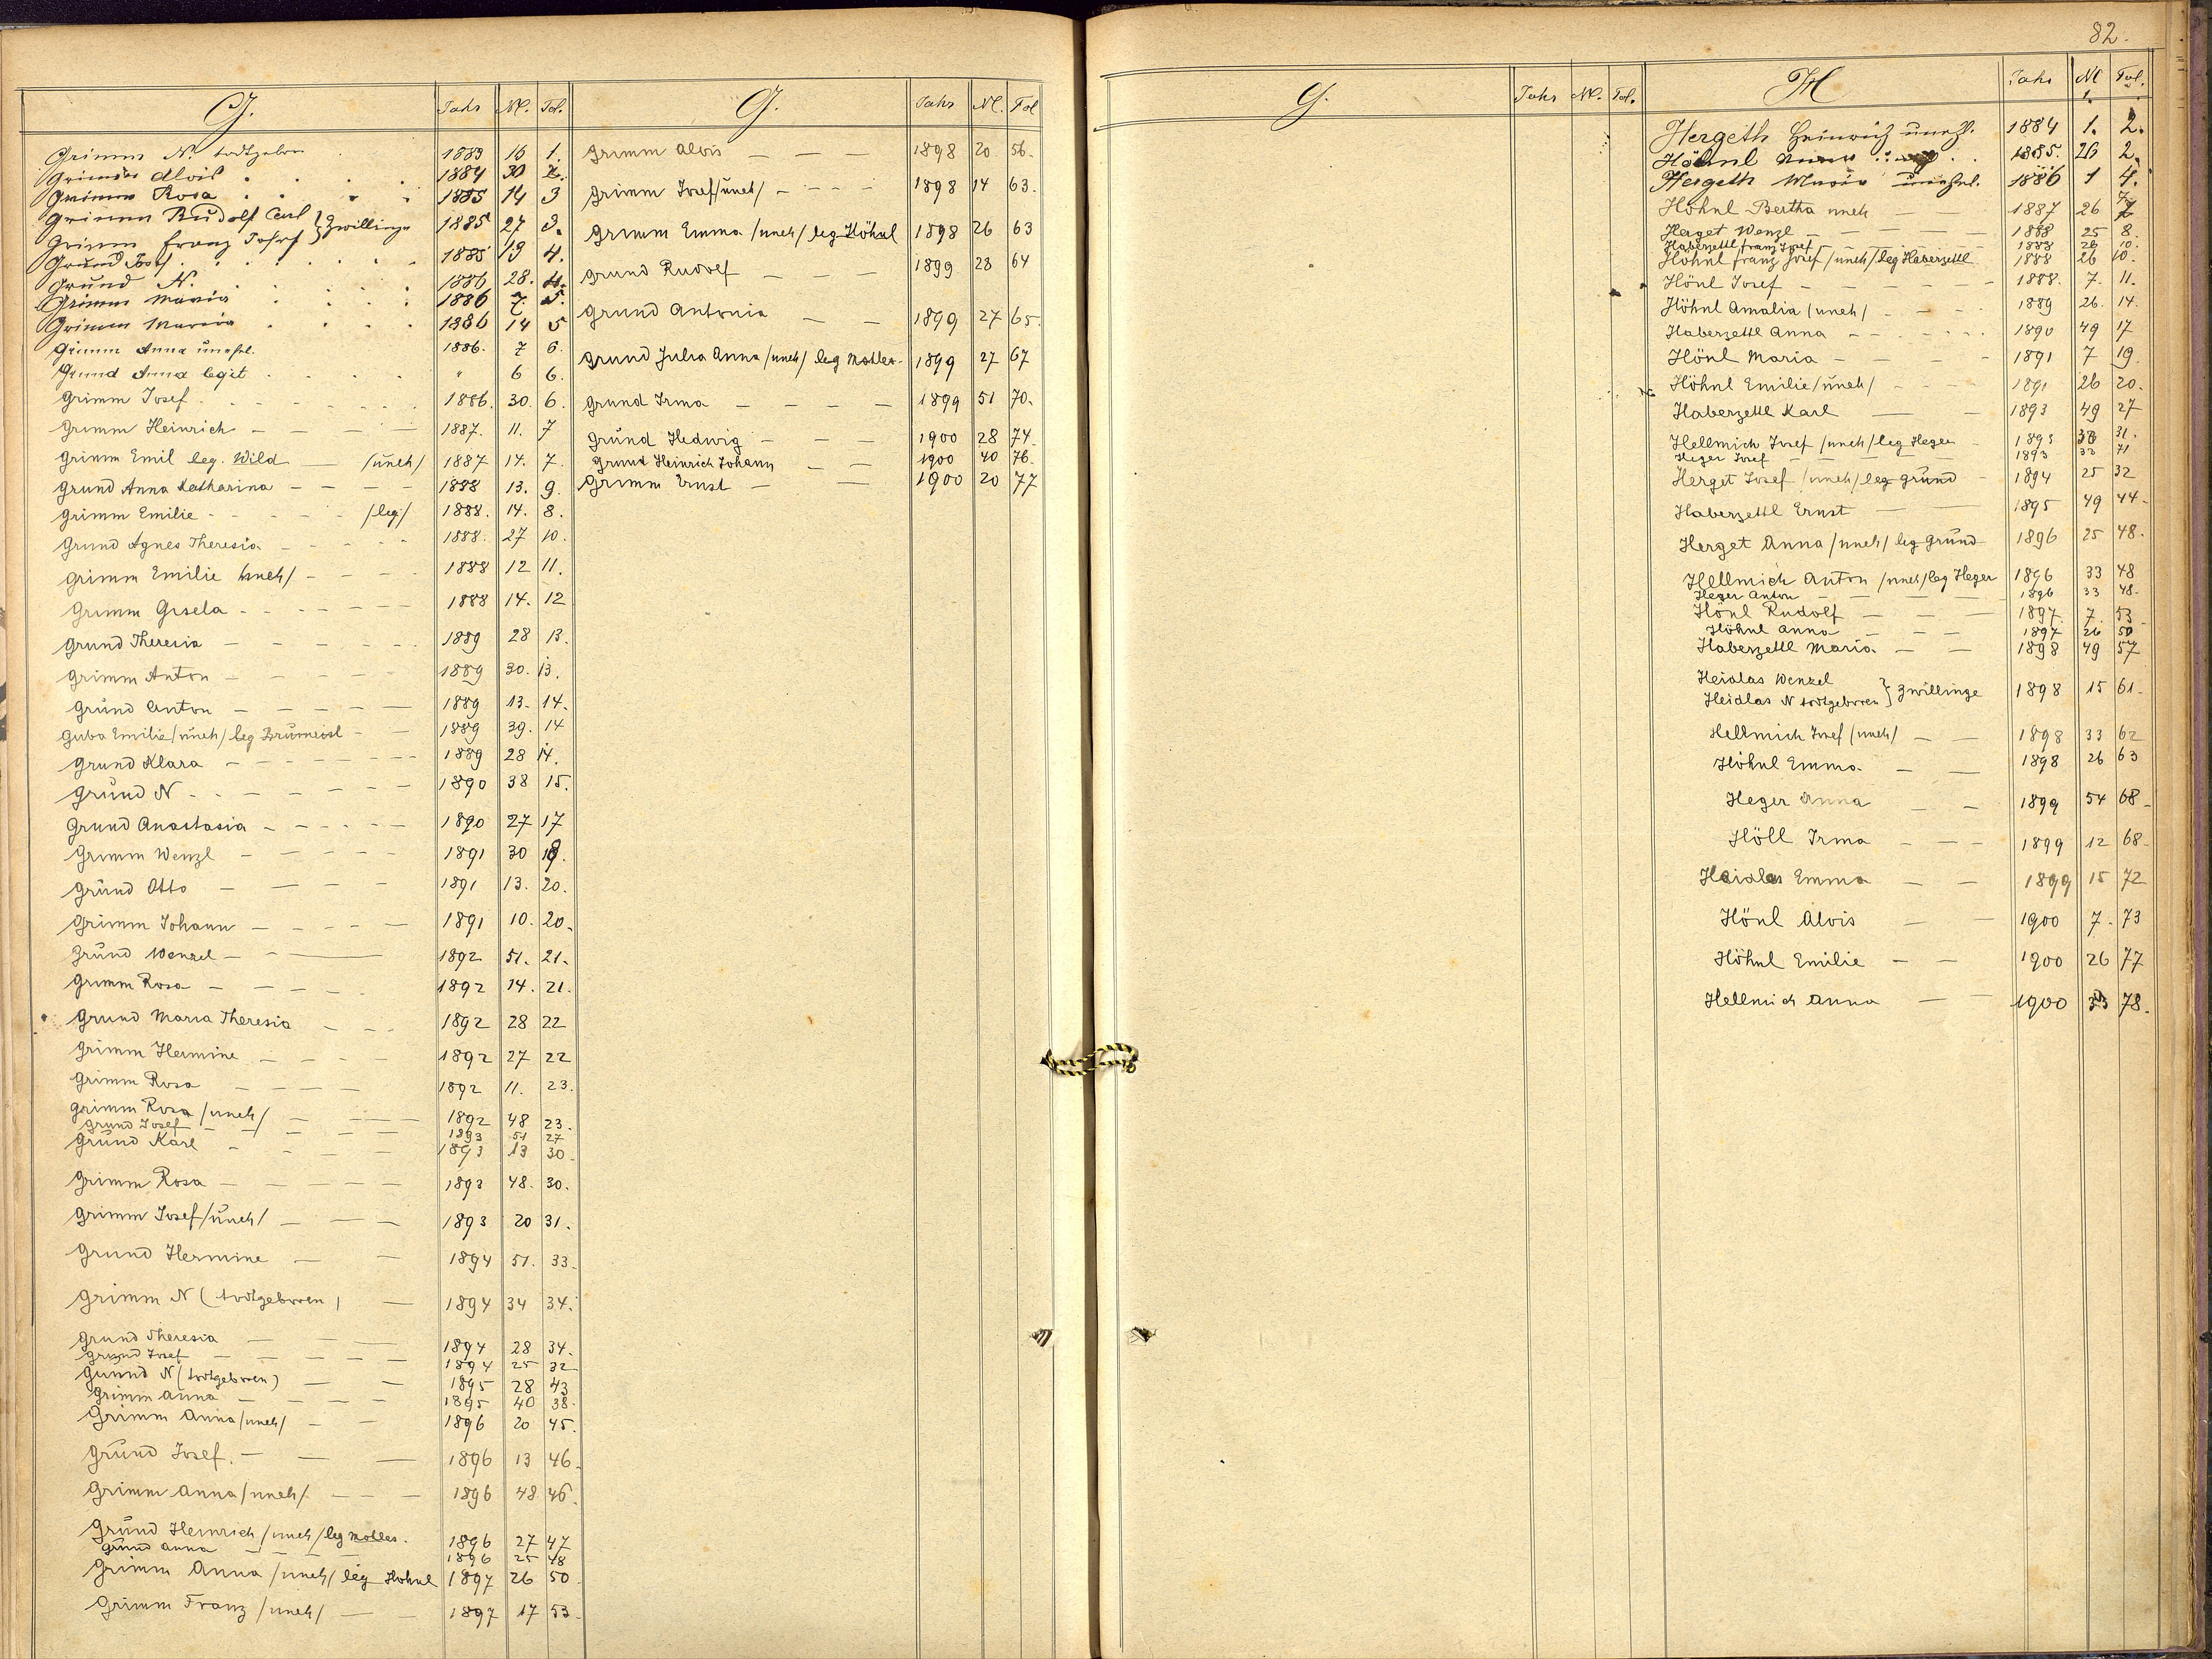 82.
G. Jahr № Fol.
Grimm N. todtgeboren 1883 16 1.
Grimm Alois 1884 30 2.
Grimm Rosa 1885 14 3
Grimm Rudolf Carl } Zwillinge 1885 27 3.
Grimm Franz Josef
Grund Josef 1885 13 4.
Grund N. 1886 28. 4.
Grimm Maria 1886 7. 5.
Grimm Maria 1886 14 5
Grimm Anna unehl. 1886. 7 6.
Grund Anna legit " 6 6.
Grimm Josef 1886. 30. 6.
Grimm Heinrich 1887. 11. 7
Grimm Emil leg. Wild /uneh/ 1887 14. 7.
Grund Anna Katharina 1888 13. 9.
Grimm Emilie /leg/ 1888. 14. 8.
Grund Agnes Theresia 1888. 27 10.
Grimm Emilie /uneh/ 1888 12 11.
Grimm Gisela 1888 14. 12
Grund Theresia 1889 28 13.
Grimm Anton 1889 30. 13.
Grund Anton 1889 13. 14.
Guba Emilie /uneh/ leg 1889 39. 14
Grund Klara 1889 28 14.
Grund N 1890 38 15.
Grund Anastasia 1890 27 17
Grimm Wenzl 1891 30 19.
Grund Otto 1891 13. 20.
Grimm Johann 1891 10. 20.
Grund Wenzel 1892 51. 21.
Grimm Rosa 1892 14. 21.
Grund Maria Theresia 1892 28 22
Grimm Hermine 1892 27 22
Grimm Rosa 1892 11. 23.
Grimm Rosa /uneh/ 1892 48 23.
Grund Josef 1893 51 27
Grund Karl 1893 13 30
Grimm Rosa 1893 48. 30.
Grimm Josef /uneh/ 1893 20 31.
Grund Hermine 1894 51. 33
Grimm N (todtgeboren) 1894 34 34.
Grund Theresia 1894 28 34.
Grund Josef 1894 25 32
Grund N (todtgeboren) 1895 28 43
Grimm Anna 1895 40 38.
Grimm Anna /uneh/ 1896 20 45.
Grund Josef. 1896 13 46
Grimm Anna /uneh/ 1896 48 46.
Grund Heinrich /uneh/ leg Mohler. 1896 27 47
Grund Anna 1896 25 48
Grimm Anna /uneh/ leg Höhnl 1897 26 50
Grimm Franz /uneh/ 1897 17 53
G. Jahr № Fol
Grimm Alois 1898 20 56.
Grimm Josef /uneh/ 1898 14 63.
Grimm Emma /uneh/ leg Höhnl 1898 26 63
Grund Rudolf 1899 28 64
Grund Antonia 1899 27 65.
Grund Julia Anna /uneh/ leg Mohler 1899 27 67
Grund Irma 1899 51 70.
Grund Hedwig 1900 28 74.
Grund Heinrich Johann 1900 40 76.
Grimm Ernst 1900 20 77
G. Jahr № Fol.
H Jahr № Fol.
Hergeth Heinrich unehl. 1884 1. 2.
Höhnl 1885. 26 2.
Hergeth Maria unehel. 1886 1 4.
Höhnl Bertha uneh 1887 26 7
Herget Wenzl 1888 25 8.
Haberzettl Franz Josef 1888 26 10.
Höhnl Franz Josef /uneh/ leg Haberzettl 1888 26 10.
Hönl Josef 1888. 7. 11.
Höhnl Amalia /uneh/ 1889 26. 14.
Haberzettl Anna 1890 49 17
Hönl Maria 1891 7 19.
Höhnl Emilie /uneh/ 1891 26 20.
Haberzettl Karl 1893 49 27
Hellmich Josef /uneh/ leg Heger 1893 33 31.
Heger Josef 1893 33 71
Herget Josef /uneh/ leg Grund 1894 25 32
Haberzettl Ernst 1895 49 44
Herget Anna /uneh/ leg Grund 1896 25 48.
Hellmich Anton /uneh/ leg Heger 1896 33 48
Heger Anton 1896 33 48.
Hönl Rudolf 1897. 7. 53
Höhnl Anna 1897 26 50
Haberzettl Maria 1898 49 57
Heidlas Wenzel } Zwillinge 1898 15 61.
Heidlas N todtgeboren
Hellmich Josef /uneh/ 1898 33 62
Höhnl Emma 1898 26 63
Heger Anna 1899 54 68
Höll Irma 1899 12 68
Heidlas Emma 1899 15 72
Hönl Alois 1900 7. 73
Höhnl Emilie 1900 26 77
Hellmich Anna 1900 33 78.